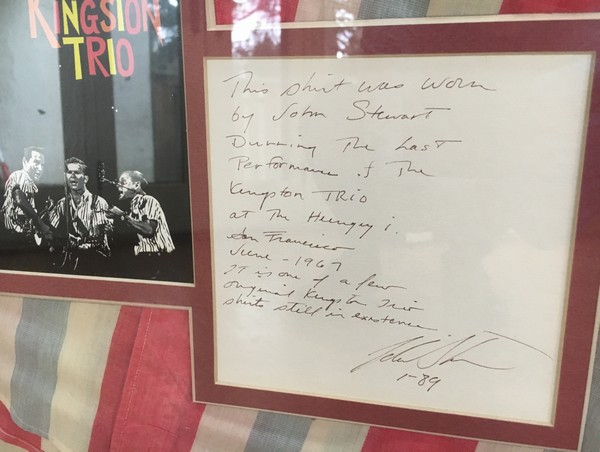 KINGSTON
TRIO
This shirt was worn
by John Stewart
Durring The Last
Performance of The
Kingston TRIO
at The Hungry i.
San Francisco
June - 1967
IT is one of a few
original Kingston Trio
shirts still in existence
John Stewart
1-89